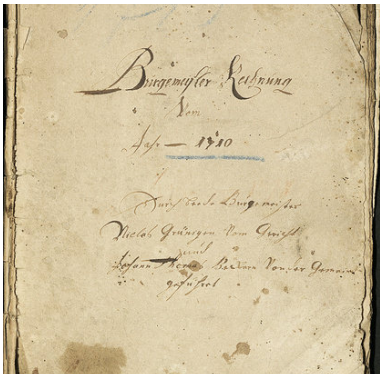 Burgemeister Rechnung
Vom
Jahr — 1710
Durch beede Burgemeister
Niclas Grünigen Vom Gericht
und
Johann Von der Gemein
geführt